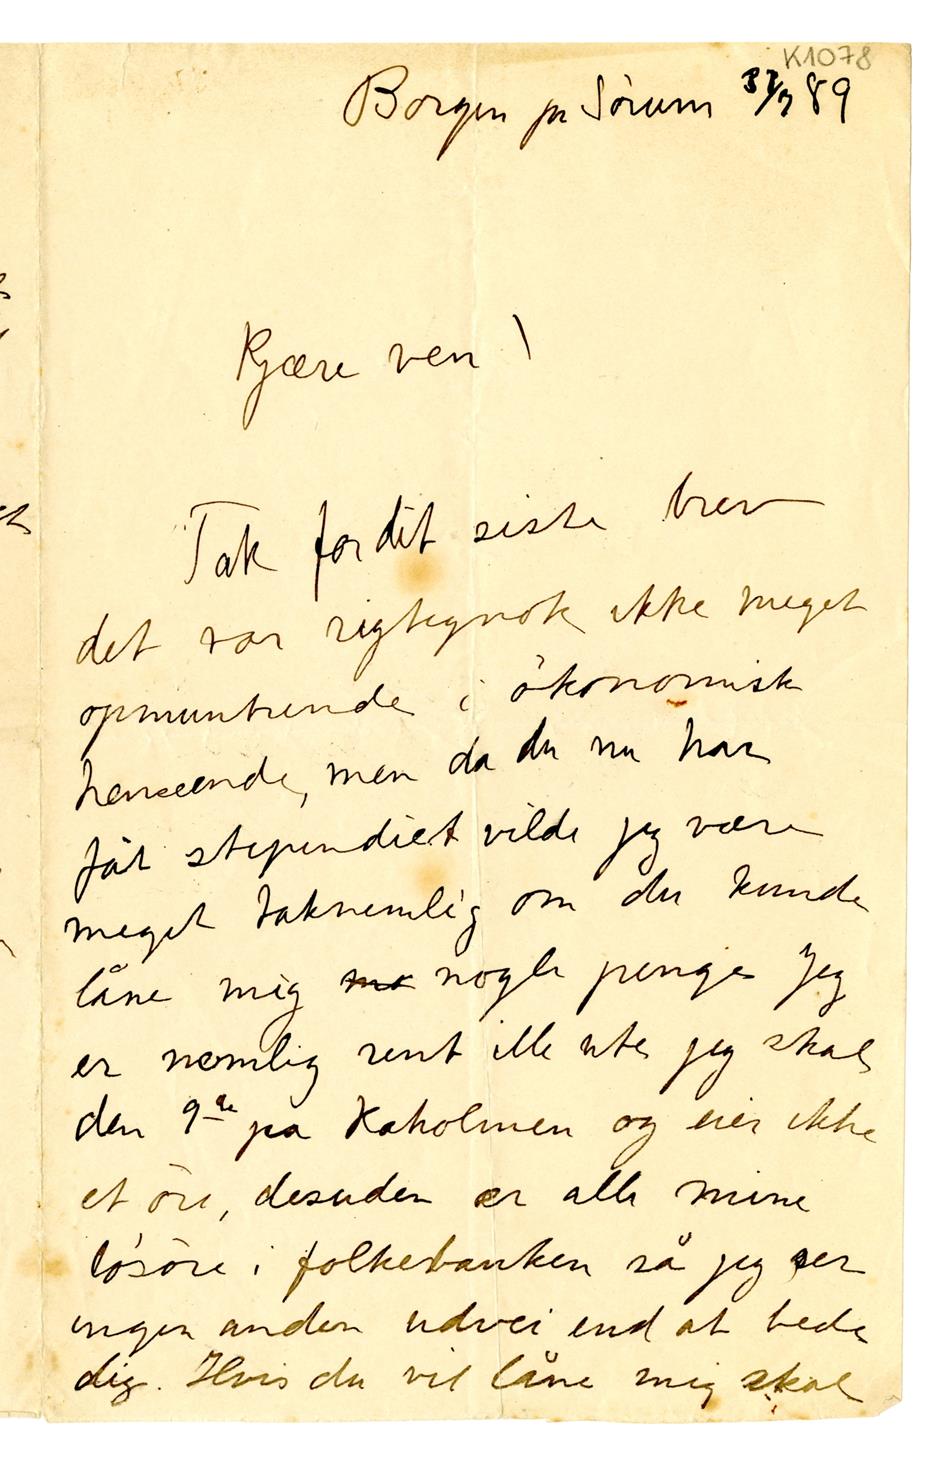 K1078
Borgen pr Sörum 89
Kjære ven!
Tak for dit siste brev
det var rigtignok ikke meget
opmuntrende i ökonomisk
henseende, men da du nu har
fåt stipendiet vilde jeg være
meget taknemlig om du kunde
låne mig nogle penge Jeg
er nemlig rent ille ute jeg skal
den 9de pa Kaholmen og eier ikke
et öre, desuden er alle mine
lösöre i folkebanken så jeg ser
ingen anden udvei end at bede
dig. Hvis du vil låne mig skal